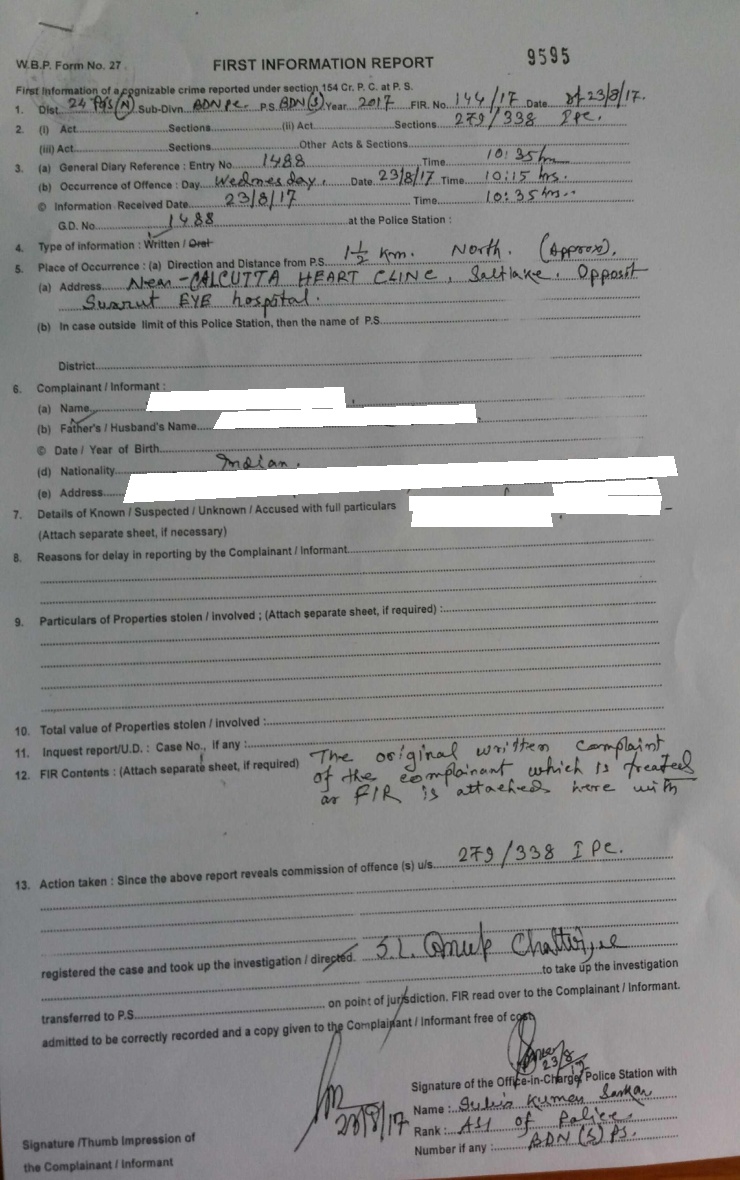 9595
W.B.P. Form No. 27 FIRST INFORMATION REPORT
First Information of a cognizable crime reported under section 154 Cr. P. C. at P. S.
1. Dist. 24 Pgs (N) Sub-Divn. BDN P.S. BDN (S) Year 2017 FIR. No. 144/17 Date 23/8/17.
2. (i) Act Sections (ii) Act Sections 279/338 IPC.
(iii) Act Sections Other Acts & Sections
3. (a) General Diary Reference : Entry No. 1488 Time 10:35 hrs
(b) Occurrence of Offence : Day Wednesday. Date 23/8/17 Time 10:15 hrs.
© Information Received Date 23/8/17 Time 10:35 hrs.
G.D. No. 1488 at the Police Station :
4. Type of information : Written / Oral
5. Place of Occurrence : (a) Direction and Distance from P.S. 1½ Km. North. (Approx).
(a) Address Near - CALCUTTA HEART CLINC, Saltlake. Opposit
EYE hospital.
(b) In case outside limit of this Police Station, then the name of P.S.
District
6. Complainant / Informant :
(a) Name
(b) Father's / Husband's Name
© Date / Year of Birth
(d) Nationality Indian.
(e) Address
7. Details of Known / Suspected / Unknown / Accused with full particulars
(Attach separate sheet, if necessary)
8. Reasons for delay in reporting by the Complainant / Informant
9. Particulars of Properties stolen / involved ; (Attach separate sheet, if required) :
10. Total value of Properties stolen / involved :
11. Inquest report/U.D. : Case No., if any :
12. FIR Contents : (Attach separate sheet, if required) The original written complaint
of the complainant which is treated
as FIR is attached here with
13. Action taken : Since the above report reveals commission of offence (s) u/s. 279/338 IPC.
registered the case and took up the investigation / directed. S.I. Anup Chatterjee
to take up the investigation
transferred to P.S. on point of jurisdiction. FIR read over to the Complainant / Informant.
admitted to be correctly recorded and a copy given to the Complainant / Informant free of cost
23/8/17
23/8/17
Signature of the Office-in-Charge Police Station with
Name : Kumar Sarkar
Rank : ASI of Police.
Number if any : BDN (S) PS.
Signature /Thumb Impression of
the Complainant / Informant